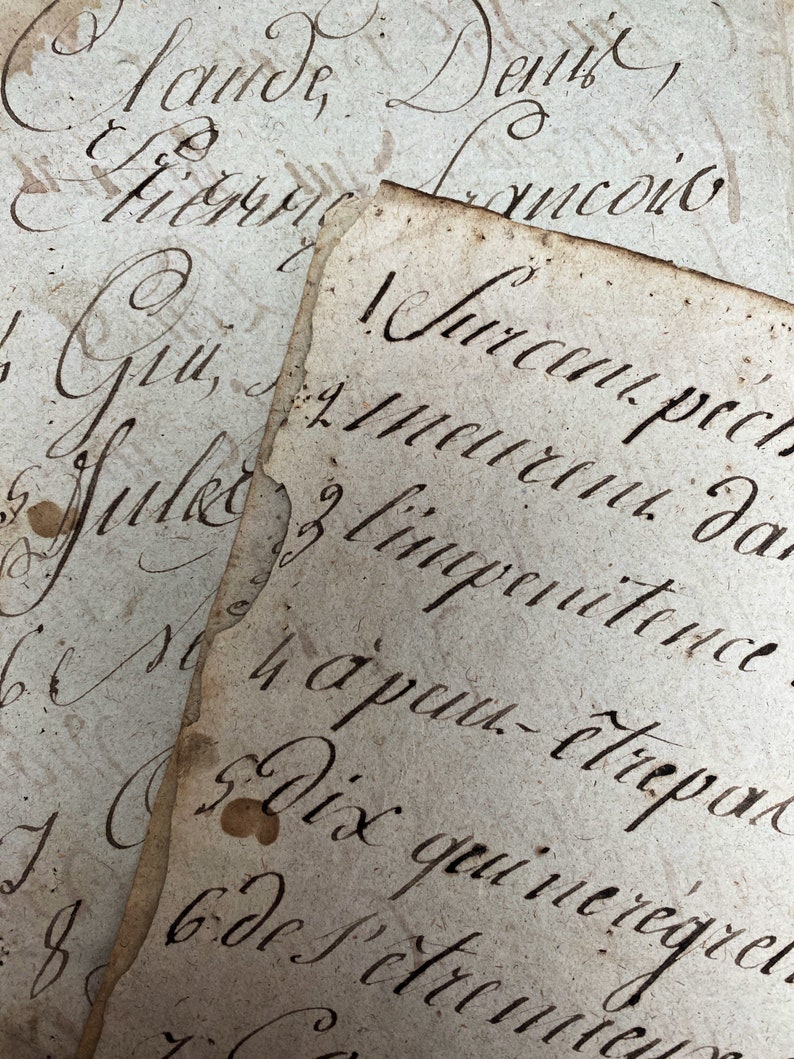 Claude, Denis,
Pierre, Francois
Gui,
5 Jules
6 e Ne
7
8
1. Surcent péch
2 meurent dan
3 l'impenitence
4 a peut-être pas
5 Dix qui ne régrett
6 de s'être mieux
7 Co